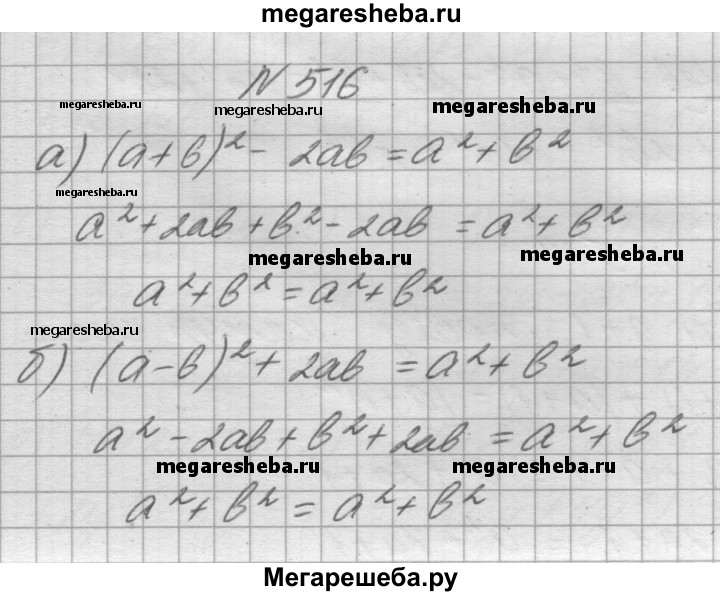 megaresheba.ru
N 516
megaresheba.ru megaresheba.ru megaresheba.ru
а) (a+b)² - 2ab = a² + b²
megaresheba.ru
a² + 2ab + b² - 2ab = a² + b²
megaresheba.ru megaresheba.ru
a² + b² = a² + b²
megaresheba.ru
б) (a-b)² + 2ab = a² + b²
a² - 2ab + b² + 2ab = a² + b²
megaresheba.ru megaresheba.ru
a² + b² = a² + b²
Мегарешеба.ру